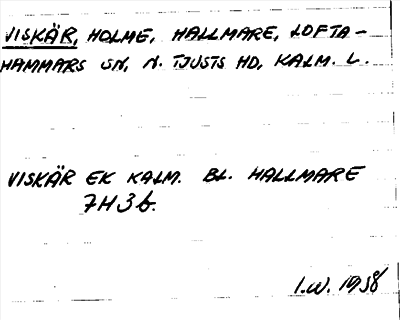 VISKÄR, HOLME, HALLMARE, LOFTA-
HAMMARS SN, N. TJUSTS HD, KALM. L.
VISKÄR EK KALM. BL. HALLMARE
7H3b.
I.W. 1938